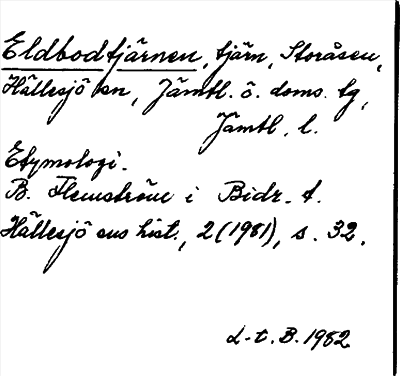 Eldbodtjärnen, tjärn, Storåsen,
Hällesjö sn, Jämtl. ö. doms. tg,
Jämtl. l.
Etymologi.
B. Flemström i Bidr. t.
Hällesjö sns hist., 2 (1981), s. 32.
L-t. B. 1982